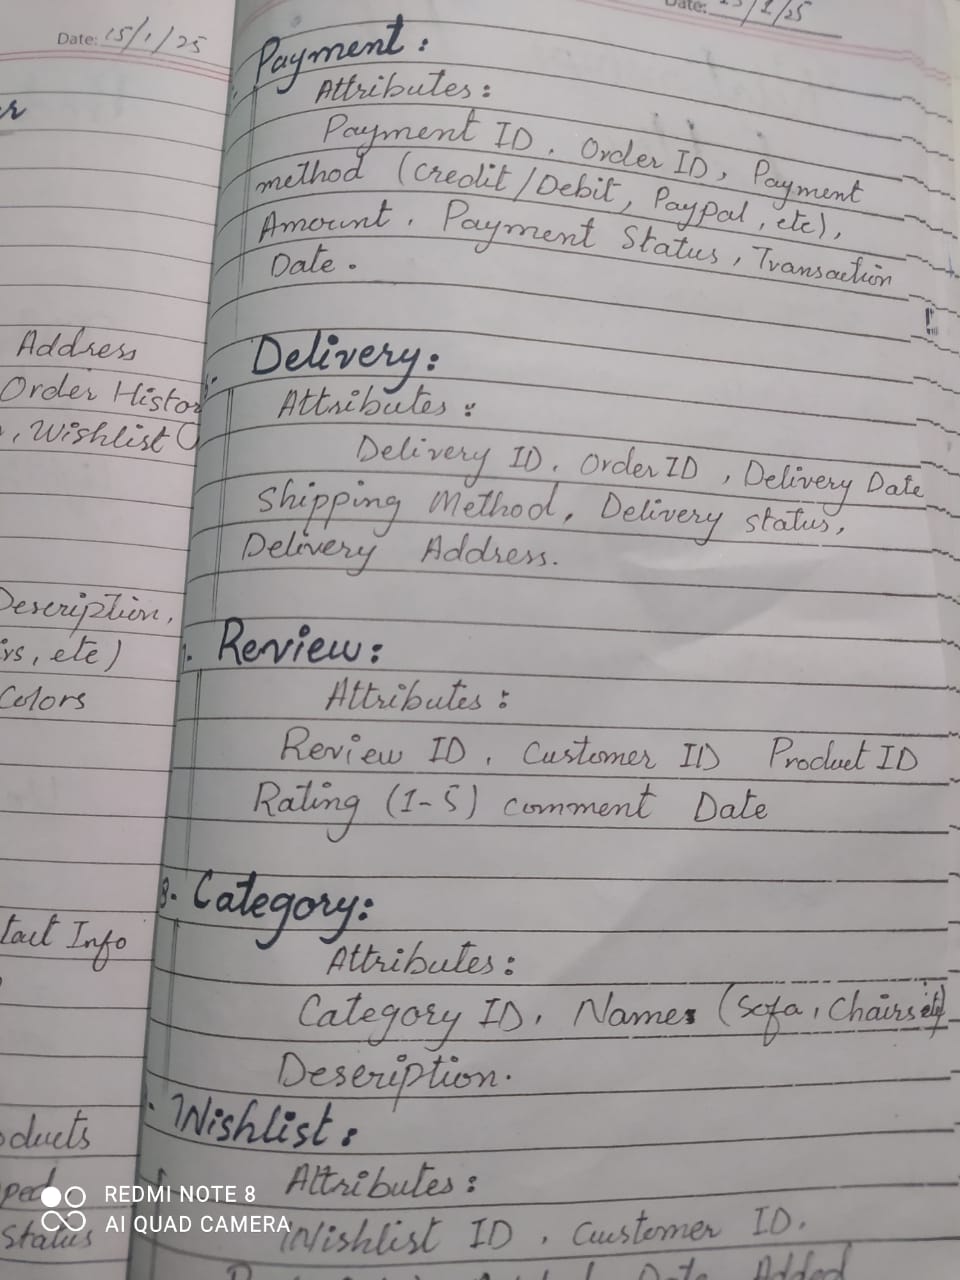 Date: 15/1/25
Address
Order Histor
, Wishlist
Description,
etc)
Colors
Info
Status
Date:
/1/25
Payment:
Attributes:
Payment ID, Order ID, Payment
method (Credit/Debit, Paypal, etc),
Amount, Payment Status, Transaction
Date.
Delivery:
Attributes:
Delivery ID, Order ID, Delivery Date
Shipping Method, Delivery status,
Delivery Address.
Review:
Attributes:
Review ID, Customer ID Product ID
Rating (1-5) comment Date
8. Category:
Attributes:
Category ID, Names (Sofa, Chairs etc)
Description.
Wishlist:
Attributes:
Wishlist ID, Customer ID.
Date Added
REDMI NOTE 8
AI QUAD CAMERA